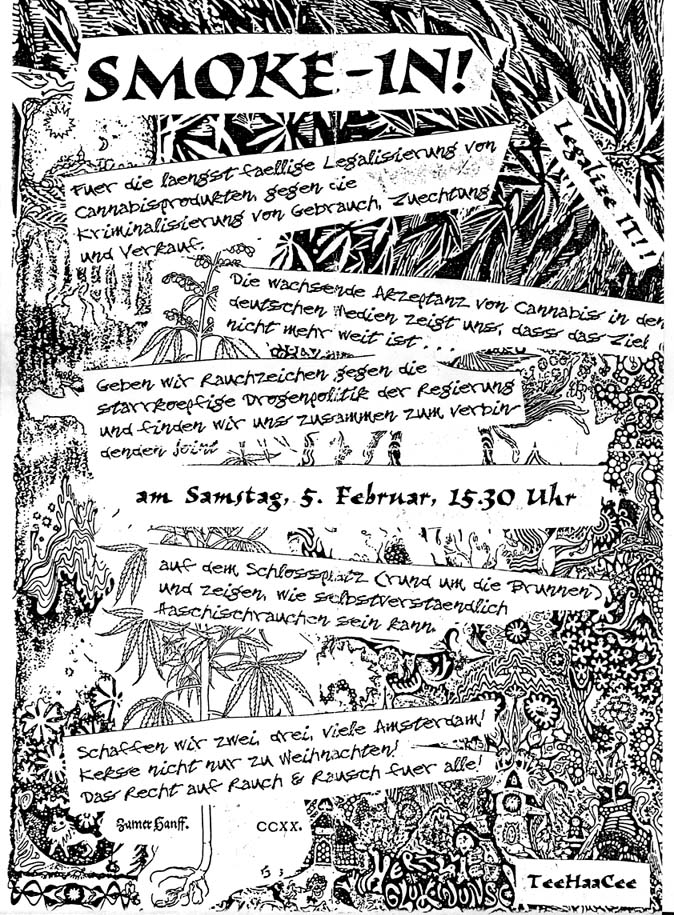 SMOKE-IN!
Legalize IT!!
Fuer die laengst faellige Legalisierung von
Cannabisprodukten, gegen die
Kriminalisierung von Gebrauch, Zuechtung
und Verkauf.
Die wachsende Akzeptanz von Cannabis in den
deutschen Medien zeigt uns, dass das Ziel
nicht mehr weit ist...
Geben wir Rauchzeichen gegen die
starrkoepfige Drogenpolitik der Regierung
und finden wir uns zusammen zum verbin-
denden joint
am Samstag, 5. Februar, 15.30 Uhr
auf dem Schlossplatz (rund um die Brunnen)
und zeigen, wie selbstverstaendlich
Haschischrauchen sein kann.
Schaffen wir zwei, drei, viele Amsterdam!
Kekse nicht nur zu Weihnachten!
Das Recht auf Rauch & Rausch fuer alle!
Zamer Hanff. CCXX.
TeeHaaCee